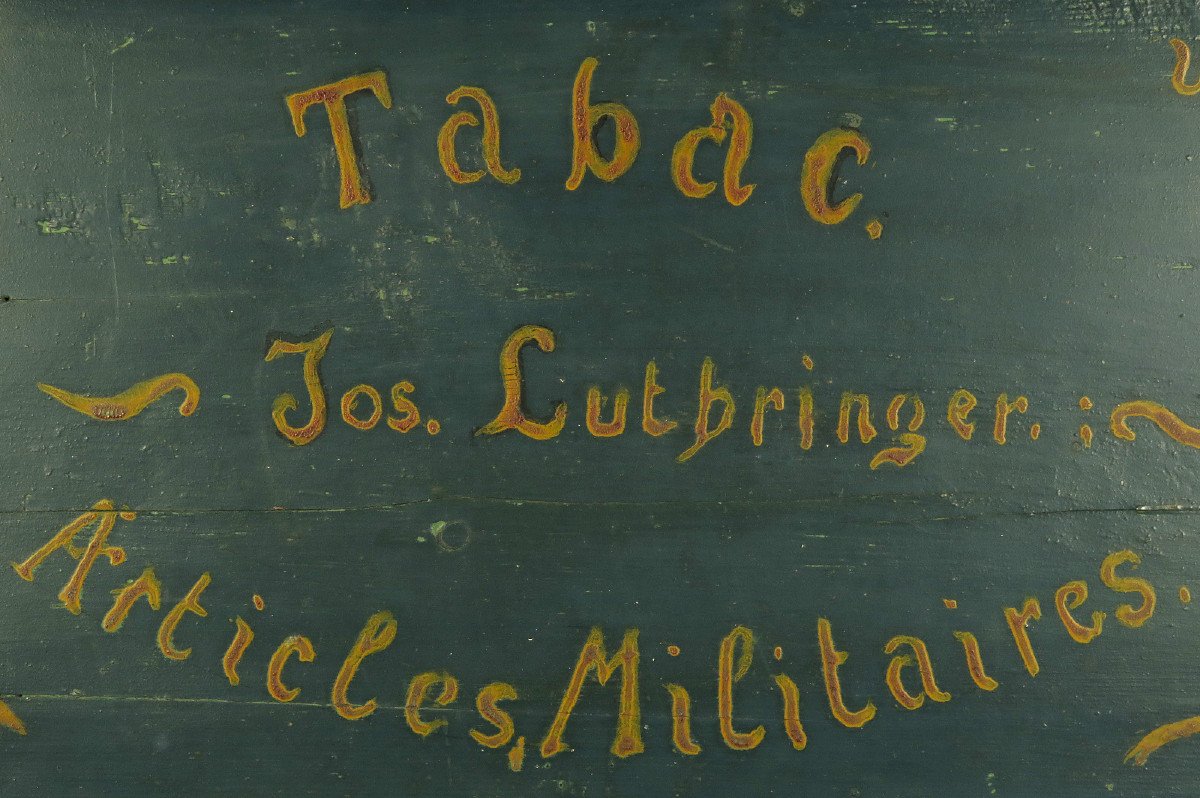 Tabac.
Jos. Lutbringer.:
Articles, Militaires.